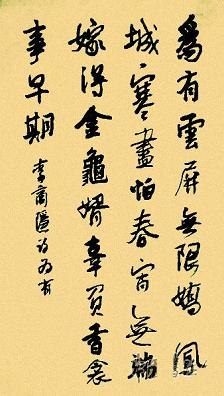 為有雲屏無限嬌鳳
城寒盡怕春宵無端
嫁得金龜婿辜負香衾
事早期
李商隱詩为有